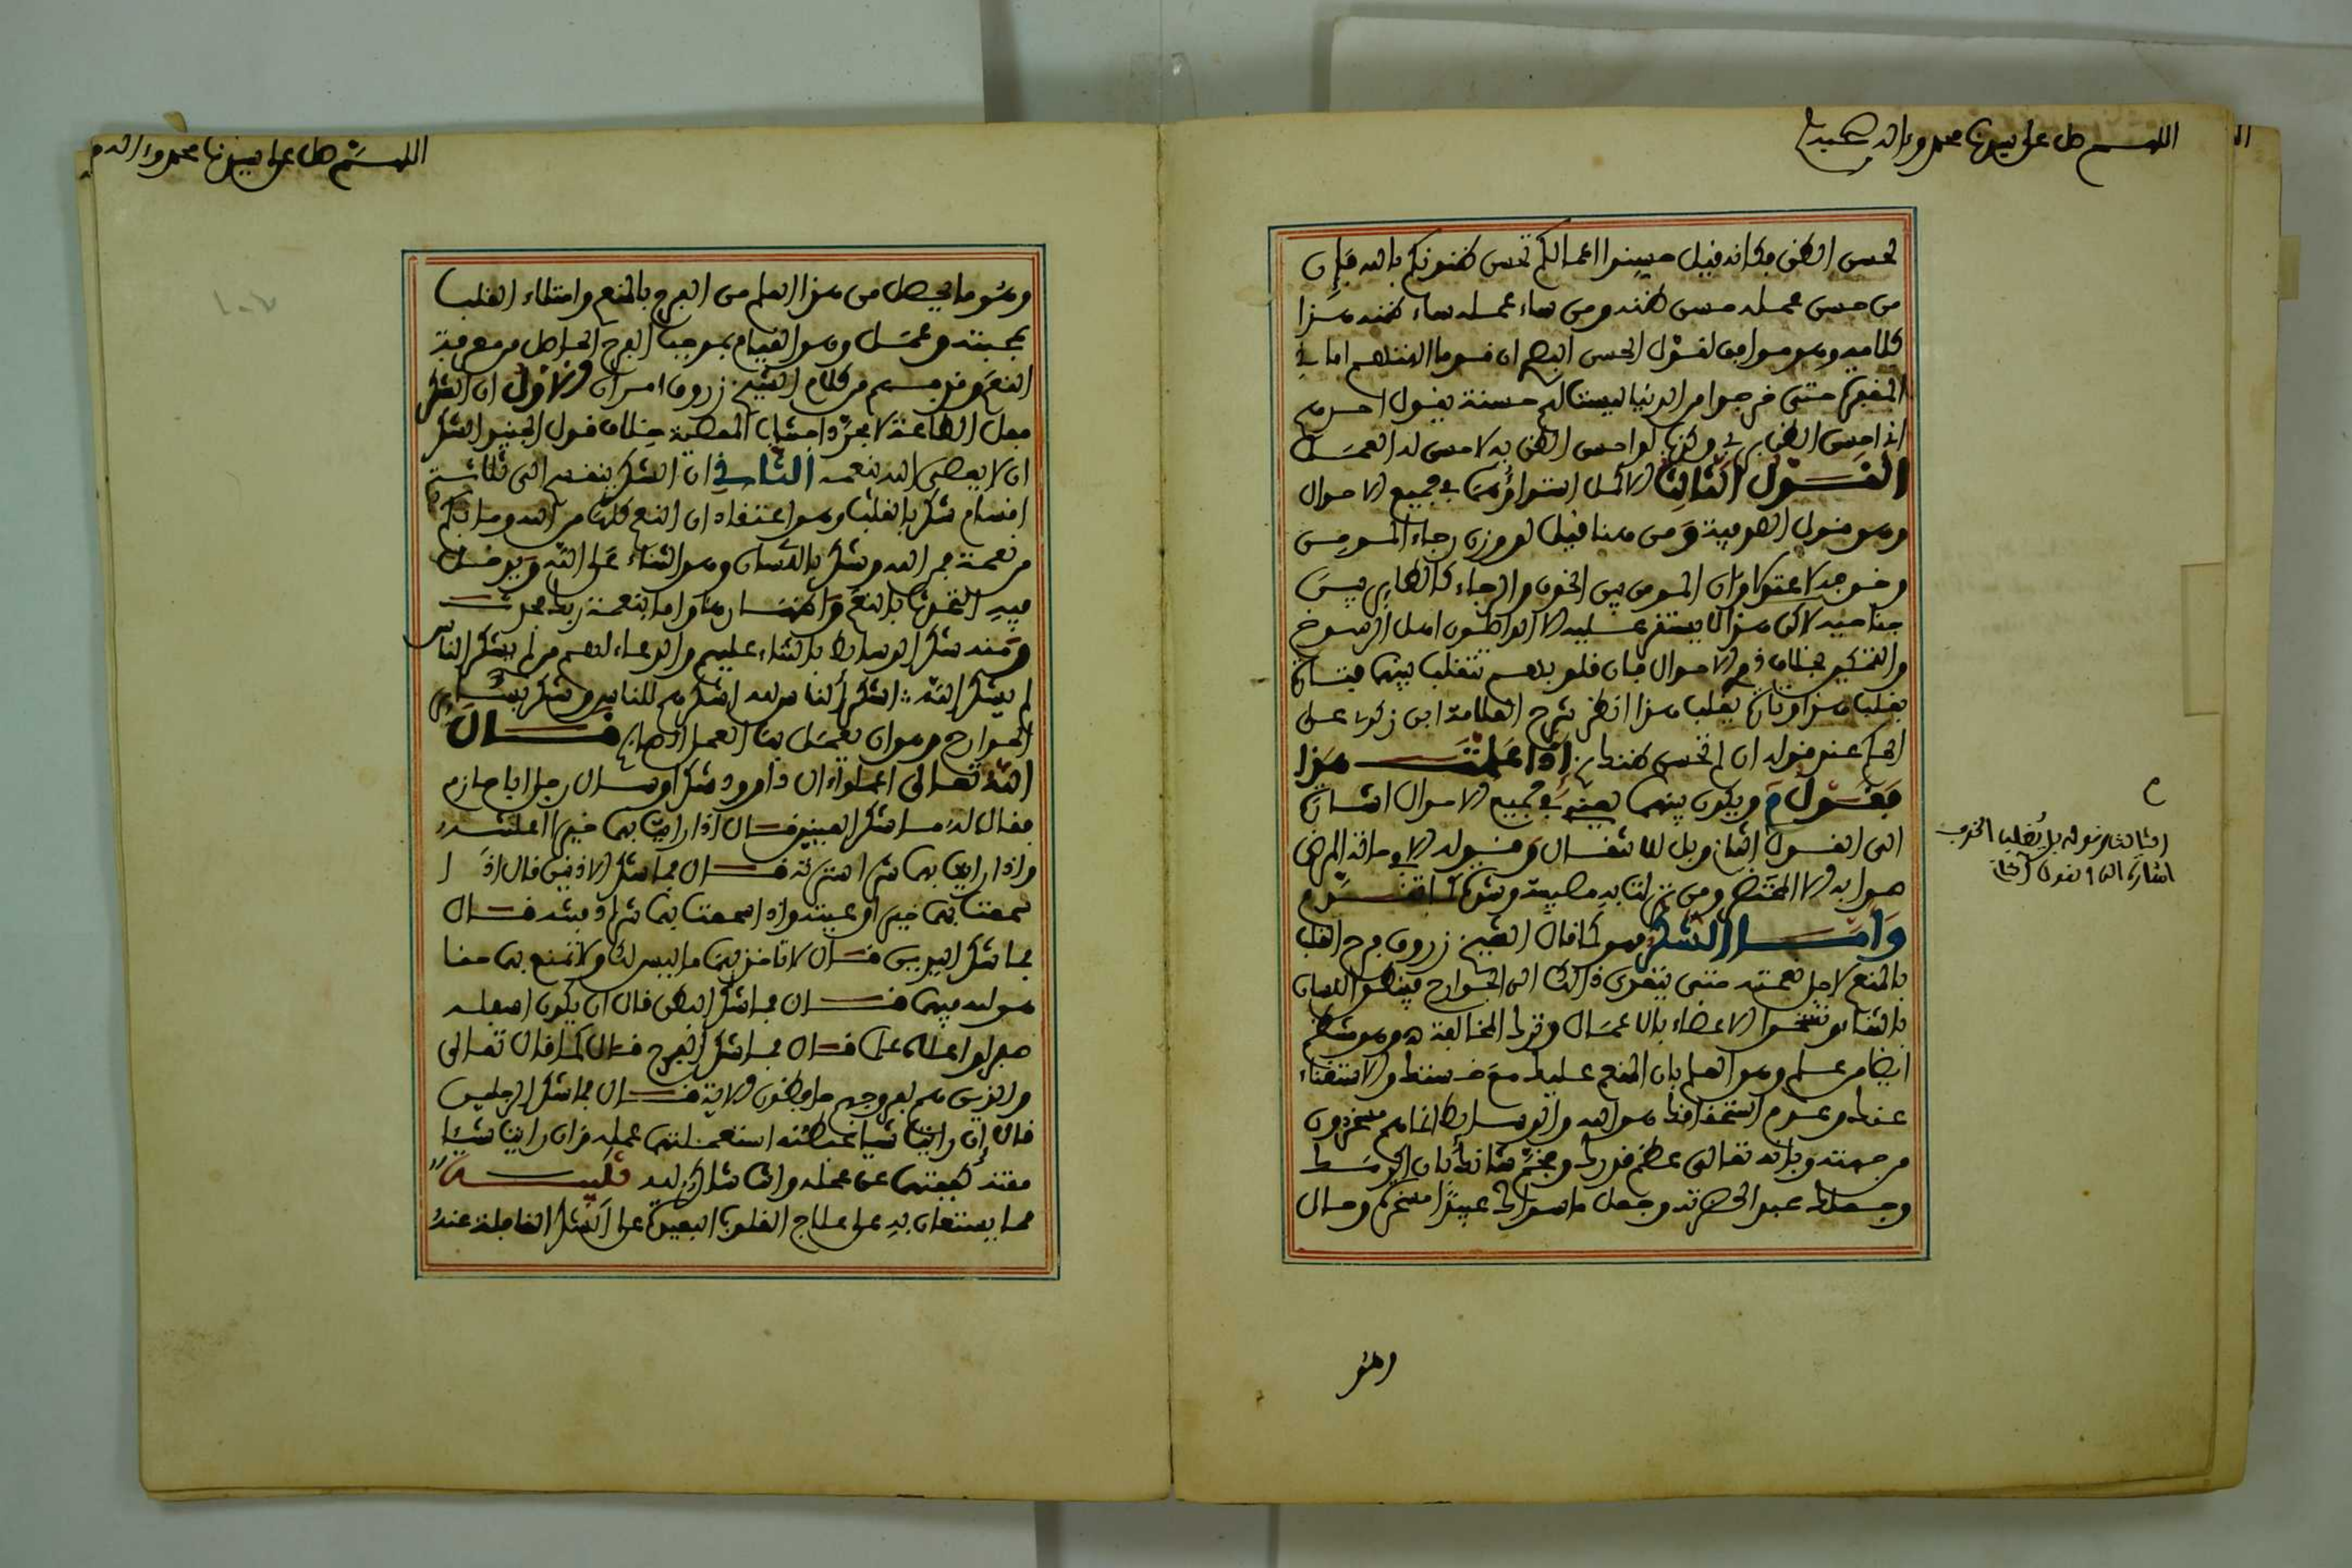 اللهم صل على سيدنا محمد وءاله وصحبه
تحسن الظن فكانه قيل حسنوا اعمالكم تحسن ظنونكم بالله فإن
من حسن عمله حسن ظنه ومن ساء عمله ساء ظنه هذا
كلامه وهو موافق لقول الحسن البصري ان قوما الهتهم اماني
المغفرة حتى خرجوا من الدنيا ليست لهم حسنة يقول احدهم
اني احسن الظن بربي وكذب لو احسن الظن به لاحسن له العمل
القول الثالث الاكمل استواؤهما في جميع الاحوال
وهو قول الصوفية ومن هنا قيل لو وزن رجاء المومن
وخوفه لاعتدلا وان المومن بين الخوف والرجاء كالطاير بين
جناحيه لاكن هذا لا يستقر عليه الا الواصلون اهل الرسوخ
والتمكين بخلاف ذوي الاحوال فان قلوبهم تتقلب بينهما فتارة
يغلب هذا وتارة يغلب هذا انظر شرح العلامة ابن زكري على
الحكم عند قوله ان لم تحسن ظنك به اذا علمت هذا
فقول م ويكون بينهما بعينه في جميع الاحوال اشارة
الى القول الثالث وبل للانتقال وقوله الا في حالة المرض
صوابه الا المحتضر ومن نزلت به مصيبة وشدة كما تقدم
وأما الشكر فهو كما قال الشيخ زروق فرح القلب
بالمنعم لاجل نعمته حتى يتعدى ذلك الى الجوارح فينطلق اللسان
بالثناء وتسخو الاعضاء بالاعمال وترك المخالفة ه وهو ينشأ
ايضا من علم وهو العلم بان المنعم عليك مع خستك والاستغناء
عنك وعدم استحقاقك هو الله والوسايط انما هم مسخرون
من جهته وبانه تعالى عظم قدرك وفخم شانك بان اكرمك
وجعلك عبدا لحضرته وجعل ما سواك عبيدا مسخرة وحال
وهو
الثالث وقوله بل يغلب الخوف
اشارة الى القول الثاني
اللهم صل على سيدنا محمد وءاله
وهو ما يحصل من هذا العلم من الفرح بالمنعم وامتلاء القلب
بمحبته وعمل وهو القيام بموجب الفرح الحاصل من معرفة
النعم وقد فهم من كلام الشيخ زروق امران الاول ان الشكر
فعل الطاعة لا مجرد اجتناب المعصية خلاف قول الجنيد الشكر
ان لا يعصى الله بنعمه الثاني ان الشكر ينقسم الى ثلاثة
اقسام شكر بالقلب وهو اعتقاد ان النعم كلها من الله وما بكم
من نعمة فمن الله وشكر باللسان وهو الثناء على الله ويدخل
فيه التحدث بالنعم واظهارها واما بنعمة ربك فحدث
ومنه شكر الوسايط بالثناء عليهم والدعاء لهم من لم يشكر الناس
لم يشكر الله : اشكر الناس لله اشكرهم للناس وشكر بسائر
الجوارح وهو ان يعمل بها العمل الصالح قال
الله تعالى اعملوا ءال داوود شكرا وسال رجل ابا حازم
فقال له ما شكر العينين قال اذا رايت بهما خيرا اعلنته
واذا رايت بهما شرا سترته قال فما شكر الاذنين قال اذا
سمعت بهما خيرا وعيته واذا سمعت بهما شرا دفنته قال
فما شكر اليدين قال لا تاخذ بهما ما ليس لك ولا تمنع بهما حقا
هو لله فيهما قال فما شكر البطن قال ان يكون اسفله
صبرا واعلاه علما قال فما شكر الفرج قال كما قال تعالى
والذين هم لفروجهم حافظون الاية قال فما شكر الرجلين
قال ان رايت شيا غبطته استعملتهما عمله وان رايت شيئا
مقته كففتهما عن عمله وانت شاكر لله تنبيه
مما يستعان به على علاج القلوب البعيدة عن الشكر الغافلة عنه